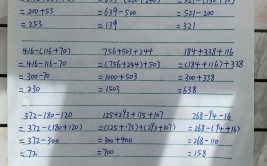 =200+53 =639-500 =521-200
=253 =139 =321
416-(116+70) 756+503+244 184+338+116
=416-116-70 =(756+244)+503 =(184+116)+338
=300-70 =1000+503 =300+338
=230 =1503 =638
372-180-120 125+273+175+107 268-94-16
=372-(180+120) =(125+175)+(273+107) =268-(94+16)
=372-300 =300+400 =268-110
=72 =700 =158